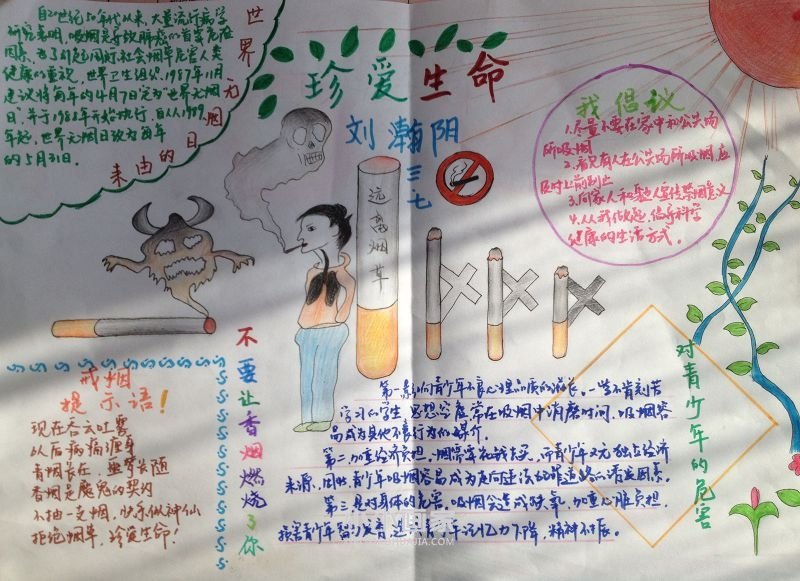 世界无烟日的由来
自20世纪50年代以来,大量流行病学
研究表明,吸烟是导致肺癌的首要危险
因素。为了引起国际社会烟草危害人类
健康的重视,世界卫生组织1987年11月
建议将每年的4月7日定为“世界无烟
日”,并于1988年开始执行,自从1989
年起,世界无烟日改为每年
的5月31日。
珍爱生命
刘瀚阳
三七
远离烟草
我倡议
1.尽量不要在家中和公共场
所吸烟
2.看见有人在公共场所吸烟,应
及时上前制止
3.向家人和
宣传禁烟意义
4.从我做起,倡导科学
健康的生活方式。
戒烟
提示语!
现在吞云吐雾
以后病痛缠身
青烟长在,噩梦长随
香烟是魔鬼的契约
不抽一支烟,快乐似神仙
拒绝烟草,珍爱生命!
不要让香烟燃烧了你
对青少年的危害
第一
青少年不良心理品质的滋长。一些不肯刻苦
学习的学生,思想空虚常在吸烟中消磨时间,吸烟容
易成为其他不良行为的媒介。
第二加重经济负担,烟需要花钱去买,而青少年又无独立经济
来源,因此青少年吸烟容易成为走向违法的罪道
诱发因素。
第三是对身体的危害。吸烟会造成缺氧,加重心脏负担,
损害青少年智力发育,
记忆力下降,精神不振。